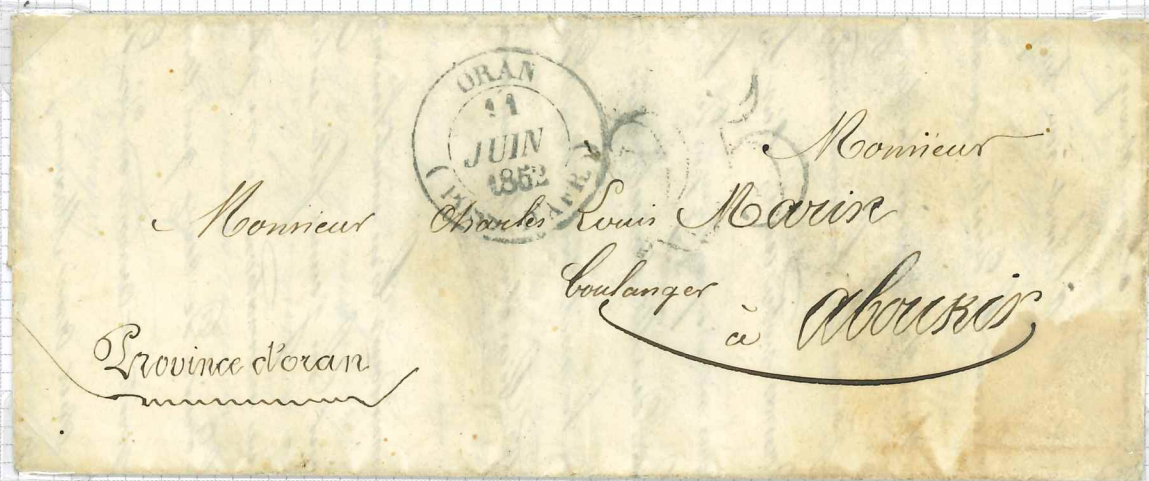 ORAN
11
JUIN
1852
25
Monsieur
Monsieur Charles Louis Marin
boulanger
à aboukir
Province d'oran